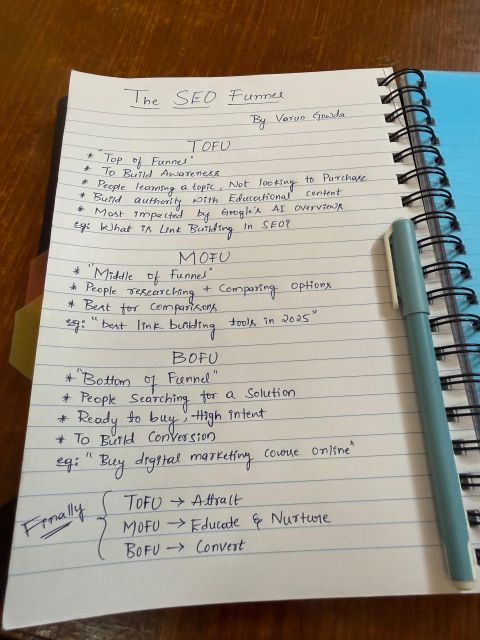 The SEO Funnel
By Varun Gowda
TOFU
* "Top of Funnel"
* To Build Awareness
* People learning a topic, Not looking to Purchase
* Build authority with Educational content
* Most impacted by Google's AI overviews
eg: What is Link Building in SEO?
MOFU
* "Middle of Funnel"
* People researching + Comparing options
* Best for Comparisons
eg: "best link building tools in 2025"
BOFU
* "Bottom of Funnel"
* People Searching for a Solution
* Ready to buy, High intent
* To Build Conversion
eg: "Buy digital marketing course online"
Finally
TOFU → Attract
MOFU → Educate & Nurture
BOFU → Convert